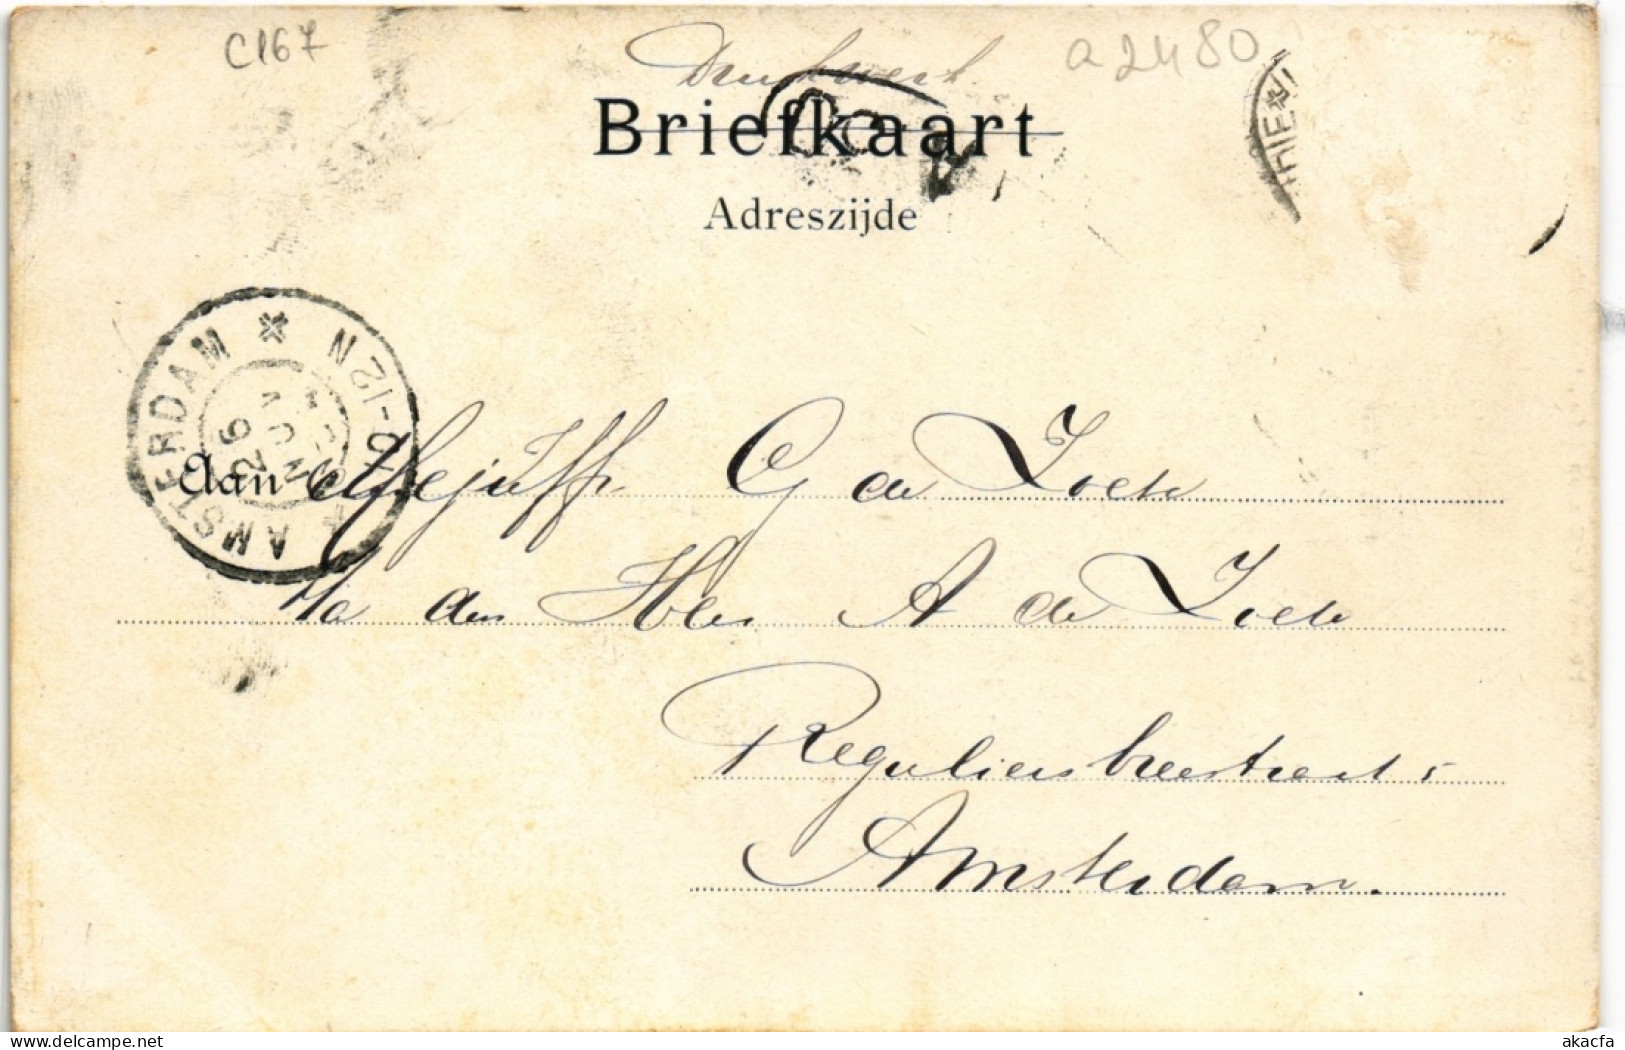 C167
a 2480
Drukwerk
Briefkaart
Adreszijde
AMSTERDAM * 
26 JUN
12N
Aan Mejuffr. G de Zoete
p/a den Heer A de Zoete
Reguliersbreestraat 5
Amsterdam.
www.delcampe.net
akacfa